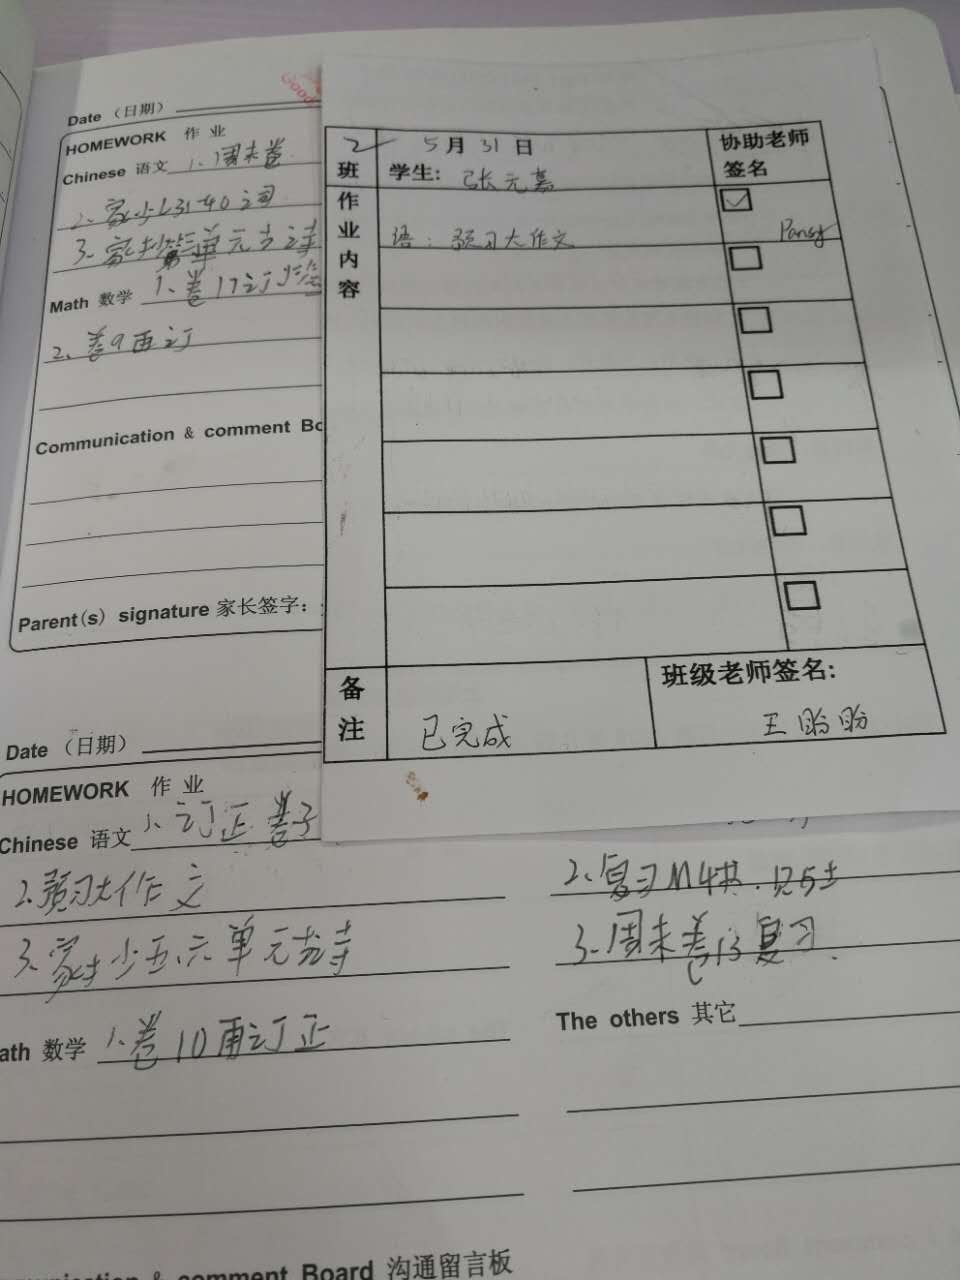 Good
Date （日期）
HOMEWORK 作 业
Chinese 语文 1、周末卷
2、家少L31-40之词
3、家 第三单元古诗
Math 数学 1、卷17订
2、卷9再订
Communication & comment Bo
Parent(s) signature 家长签字：
2 班 5月31日
学生: 张元嘉
协助老师签名
作业内容
语：预习大作文
Pansy
备注
已完成
班级老师签名:
王盼盼
Date （日期）
HOMEWORK 作 业
Chinese 语文 1、订正卷子
2.预习大作文
3、家 少五、六单元古诗
ath 数学 1.卷10再订正
2、复习M4书.
3.周末卷13复习.
The others 其它
unication & comment Board 沟通留言板